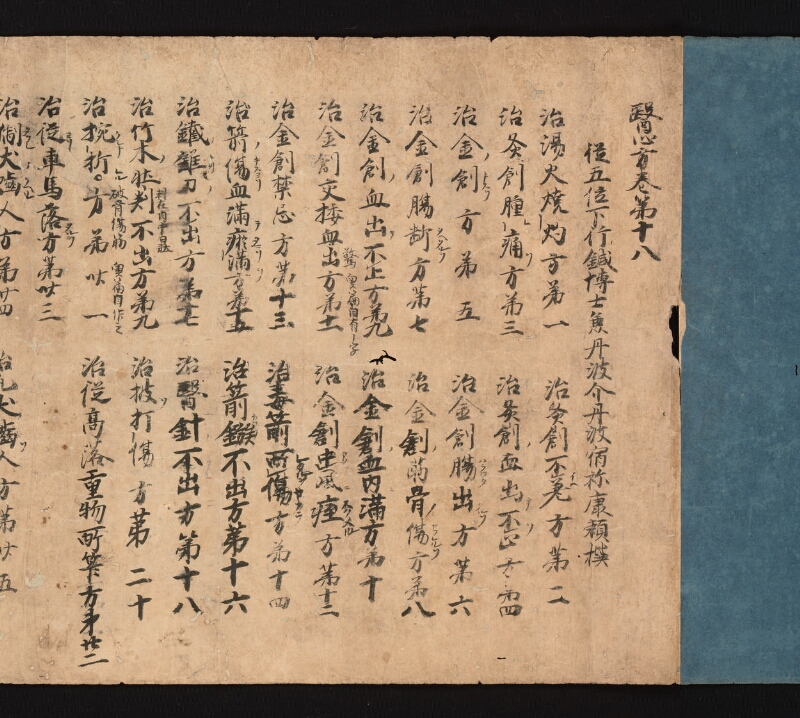 醫心方卷第十八
從五位下行鍼博士兼丹波介丹波宿祢康頼撰
治湯火燒灼方第一 治灸創不差方第二
治灸創腫痛方第三 治灸創血出不止方第四
治金創方第五 治金創腸出方第六
治金創腸斷方第七 治金創筋骨傷方第八
治金創血出不止方第九 治金創血內滿方第十
治金創交接血出方第十一 治金創中風痓方第十二
治金創禁忌方第十三 治毒箭所傷方第十四
治箭傷血滿瘀滿方第十五 治箭鏃不出方第十六
治鐵錐刀不出方第十七 治醫針不出方第十八
治竹木壯刺不出方第十九 治被打傷方第二十
治捥折破骨傷筋方第廿一 治從高落重物所笮方第廿二
治從車馬落方第廿三
治猘犬齧人方第廿四 治凡犬齧人方第廿五